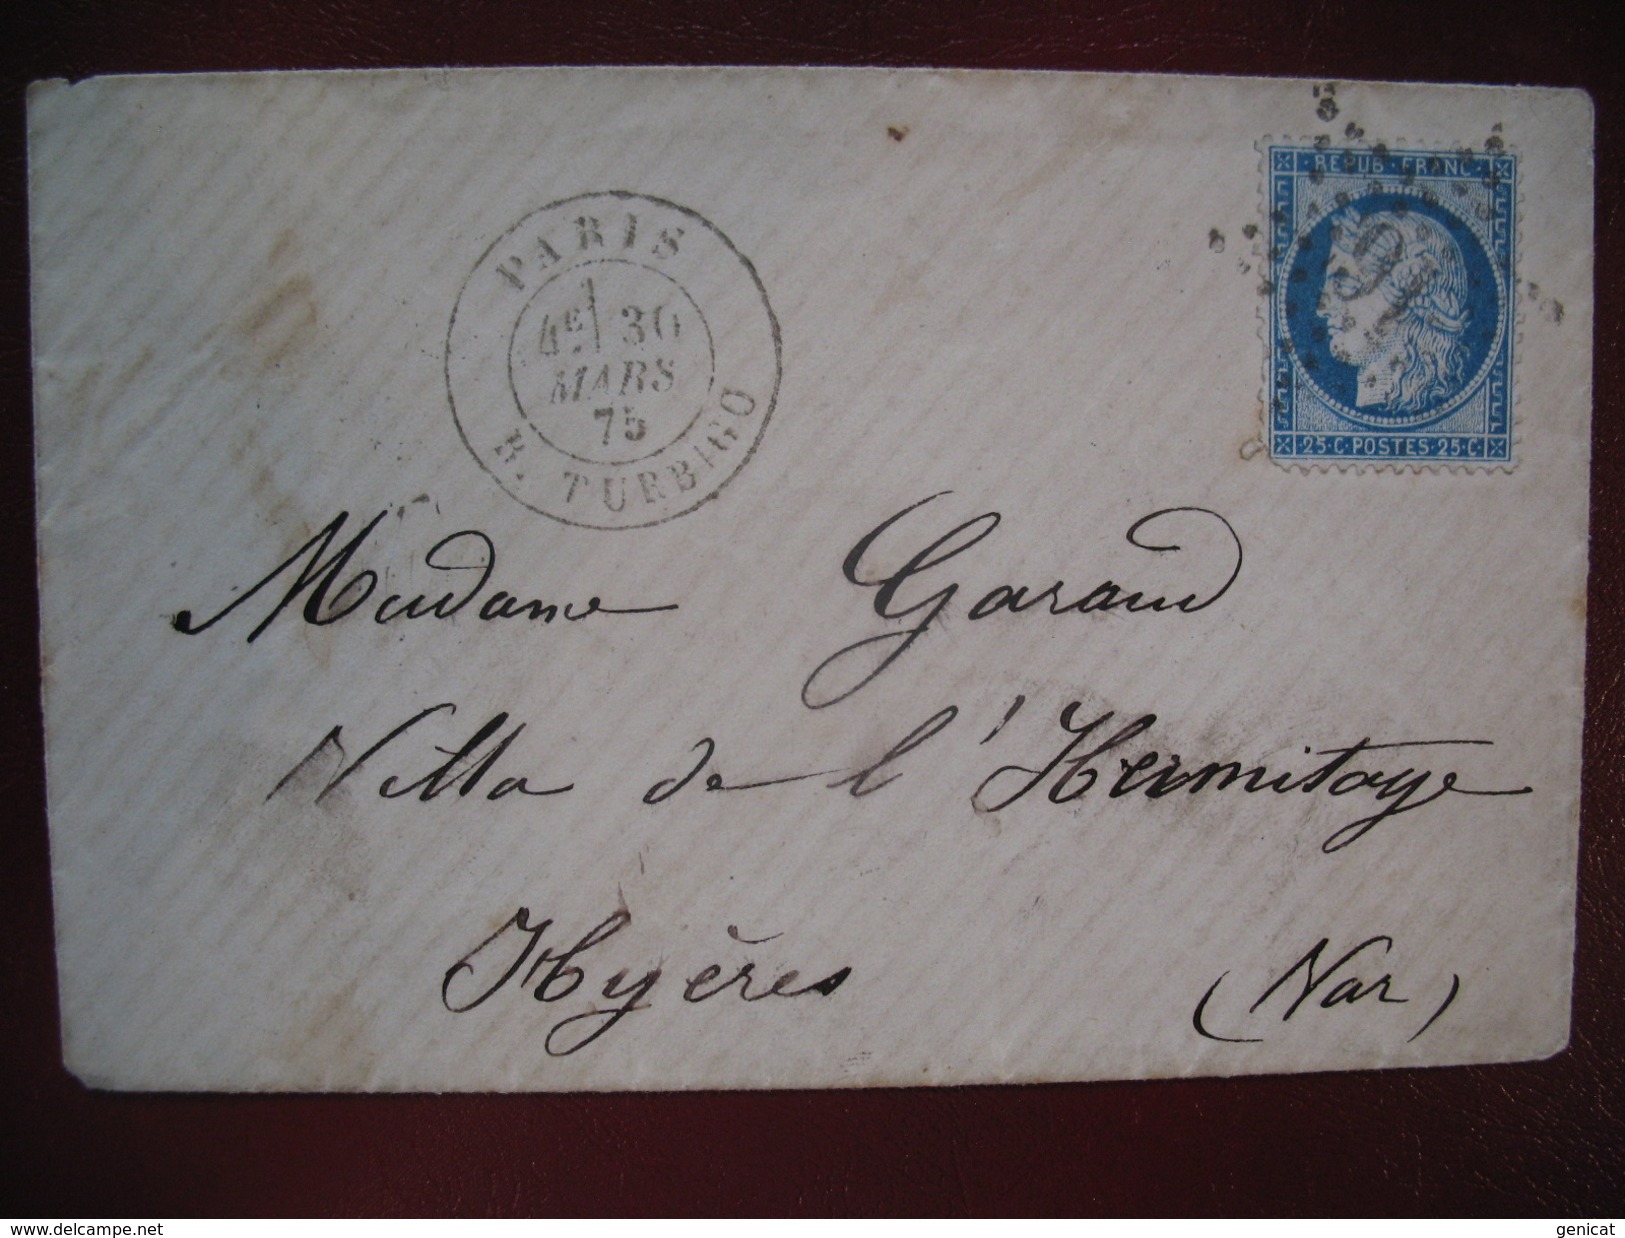 REPUB·FRANC·
PARIS
4E 30
MARS
75
R. TURBIGO
25·C·POSTES·25·C·
Madame Garaud
Villa de l'Hermitage
Hyères (Var)
www.delcampe.net
genicat